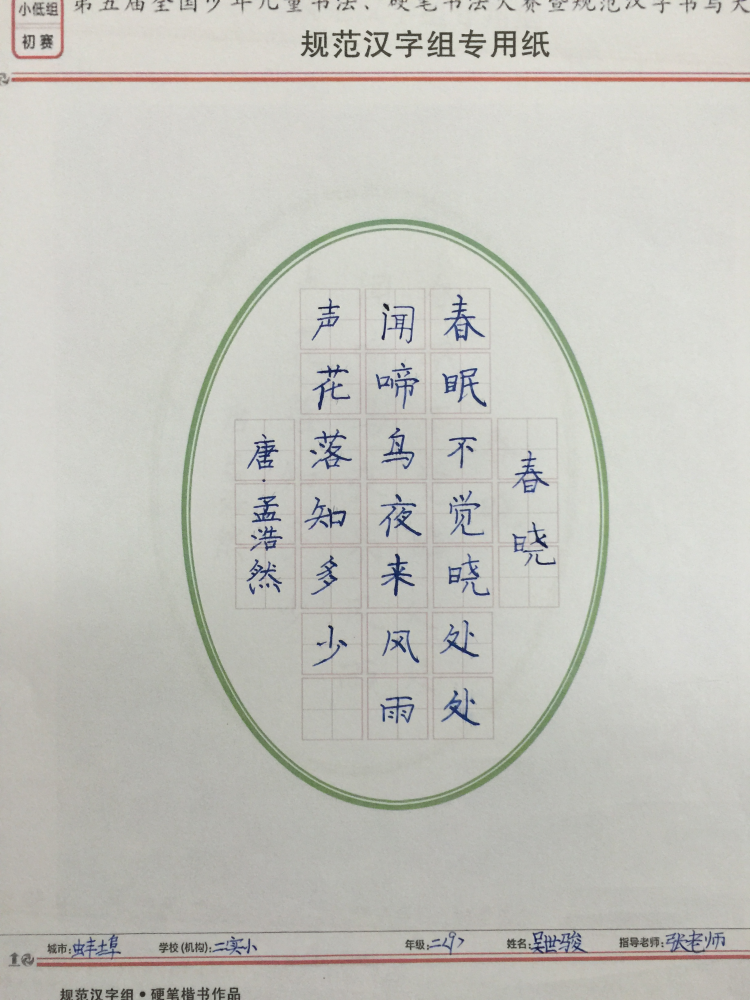 小低组
初赛
第五届全国少年儿童书法、硬笔书法大赛暨规范汉字书写大
规范汉字组专用纸
春晓
春眠不觉晓处处
闻啼鸟夜来风雨
声花落知多少
唐·孟浩然
城市:蚌埠 学校(机构):二实小 年级:二(9) 姓名:吴世骏 指导老师:张老师
规范汉字组·硬笔楷书作品